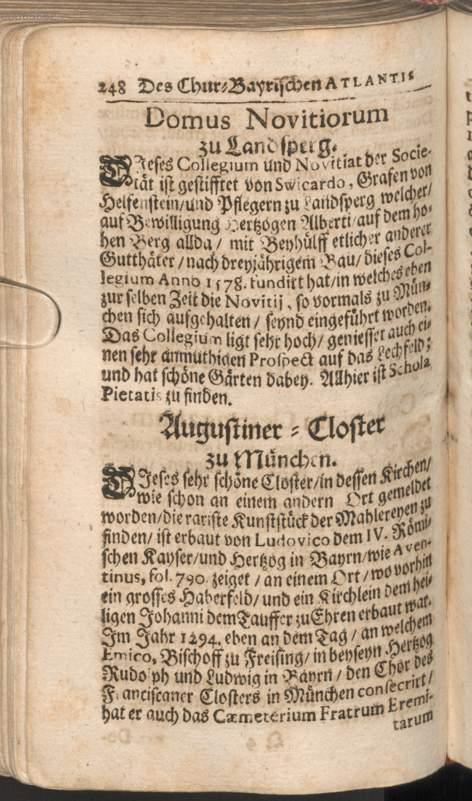 248 Des Chur-Bayrischen ATLANTIS
Domus Novitiorum
zu Landsperg.
DIeses Collegium und Novitiat der Socie-
tät ist gestifftet von Swicardo, Grafen von
Helfenstein/und Pflegern zu Landsperg welcher/
auf Bewilligung Hertzogen Alberti/auf dem ho-
hen Berg allda/ mit Beyhülff etlicher anderer
Gutthäter/nach dreyjährigem Bau/dieses Col-
legium Anno 1578. fundirt hat/in welches eben
zur selben Zeit die Novitij, so vormals zu Mün-
chen sich aufgehalten/ seynd eingeführt worden.
Das Collegium ligt sehr hoch/geniesset auch ei-
nen sehr anmuthigen Prospect auf das Lechfeld;
und hat schöne Gärten dabey. Allhier ist Schola
Pietatis zu finden.
Augustiner-Closter
zu München.
DIeses sehr schöne Closter/in dessen Kirchen/
wie schon an einem andern Ort gemeldet
worden/die rariste Kunststück der Mahlereyen zu
finden/ ist erbaut von Ludovico dem IV. Römi-
schen Kayser/und Hertzog in Bayrn/wie Aven-
tinus, fol. 790. zeiget/an einem Ort/wo vorhin
ein grosses Haberfeld/und ein Kirchlein dem hei-
ligen Johanni dem Tauffer zu Ehren erbaut war.
Im Jahr 1294. eben an dem Tag/ an welchem
Emico, Bischoff zu Freising/in beyseyn Hertzog
Rudolph und Ludwig in Bayrn/ den Chor des
Franciscaner Closters in München consecrirt/
hat er auch das Cæmeterium Fratrum Eremi-
tarum